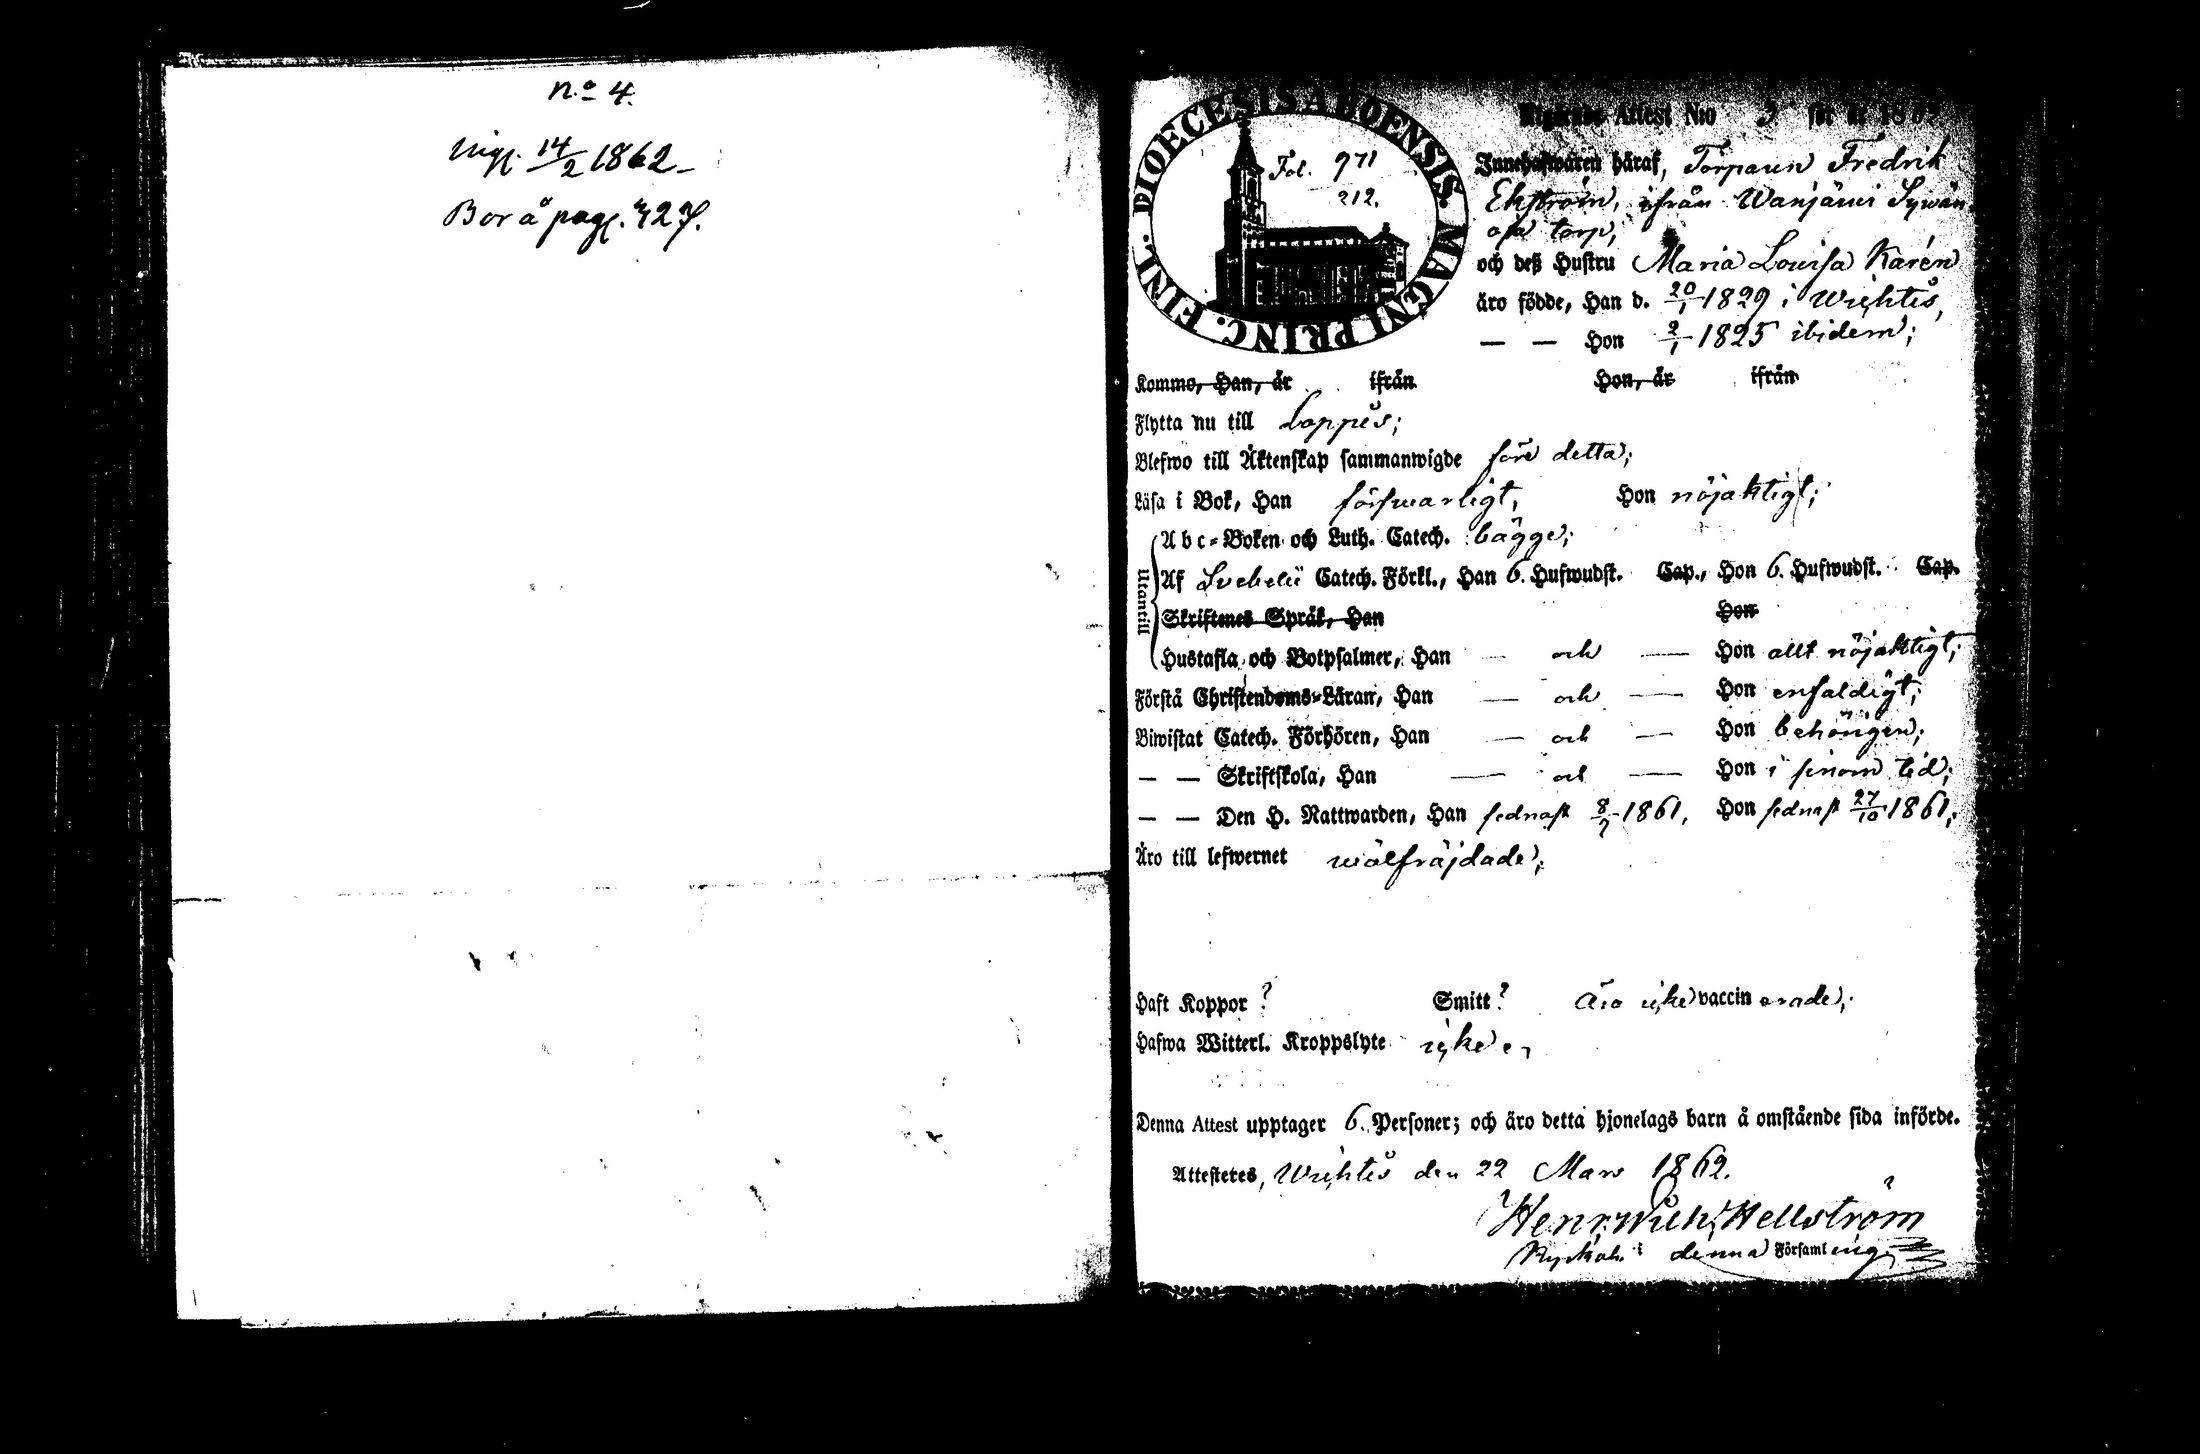 n:o 4.
Ingf. 14/2 1862
Bor å pag. 427.
DIOECESIS ABOENSIS. MAGNI PRINC. FINL.
Fol. 971
212.
Attest N:o 3 för år 1862.
Innehafwaren häraf, Torparen Fredrik
Ekström, ifrån Wanjärwi Sywän
oja torp,
och deß Hustru Maria Lowisa Karén
äro födde, Han d. 20/1 1829 i Wichtis,
— — Hon 2/1 1825 ibidem;
Komme, Han, år ifrån Hon, år ifrån
Flytta nu till Loppis;
Blefwo till Äktenskap sammanwigde före detta;
Läsa i Bok, Han förswarligt, Hon nöjaktigt;
Utantill
Abc-Boken och Luth. Catech. bägge;
Af Svebelii Catech. Förkl., Han 6. Hufwudst. Cap., Hon 6. Hufwudst. Cap.
Skriftenes Språk, Han Hon
Hustafla och Botpsalmer, Han — och — Hon allt nöjaktigt;
Förstå Christendoms-Läran, Han — och — Hon enfaldigt;
Biwistat Catech. Förhören, Han — och — Hon behörigen;
— — Skriftskola, Han — och — Hon i sinom tid;
— — Den H. Nattwarden, Han sednast 8/9 1861, Hon sednast 27/10 1861;
Äro till lefwernet wälfräjdade;
Haft Koppor ? Smitt ? Äro icke vaccinerade;
Hafwa Witterl. Kroppslyte icke,
Denna Attest upptager 6. Personer; och äro detta hjonelags barn å omstående sida införde.
Attesteres, Wichtis den 22 Mars 1862.
Henr. Wilh. Hellström
Kyrkoh. i denna Församling.